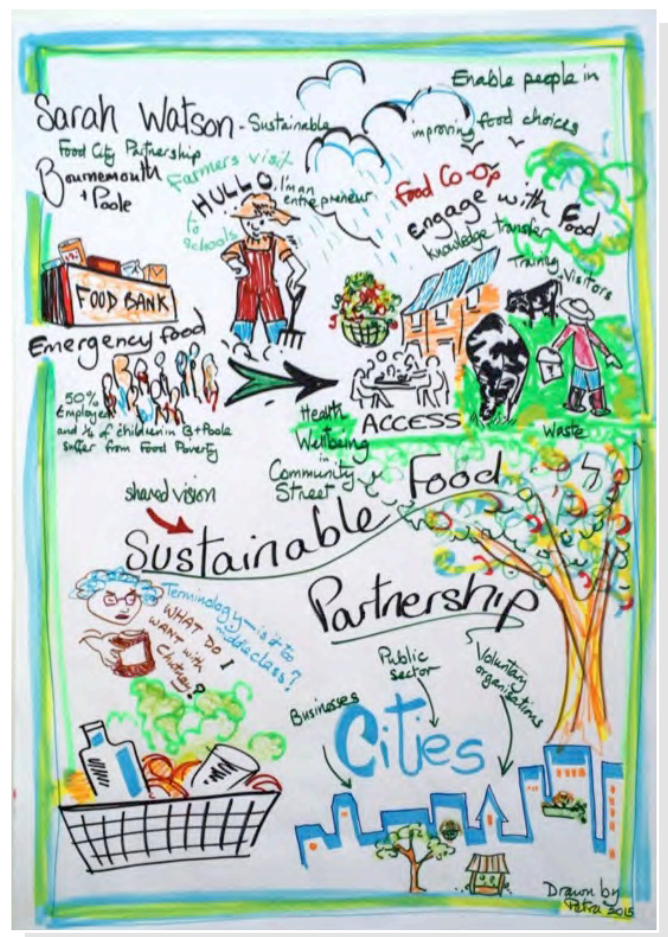 Sarah Watson - Sustainable
Food City Partnership
Bournemouth
+ Poole
Enable people in
improving food choices
Farmers visit
to
schools
HULLO, I'm an
entrepreneur
Food Co-Op
Engage with Food
knowledge transfer
Training Visitors
FOOD BANK
Emergency food
50%
Employed
and ¼ of children in B+Poole
suffer from Food Poverty
Health
Wellbeing
in
Community
Street
ACCESS
Waste
shared vision
Sustainable Food
Partnership
Terminology - is it too
middle class?
WHAT DO I
WANT with
Chutney?
Businesses
Public
sector
Voluntary
organisations
Cities
Drawn by
Petra 2015